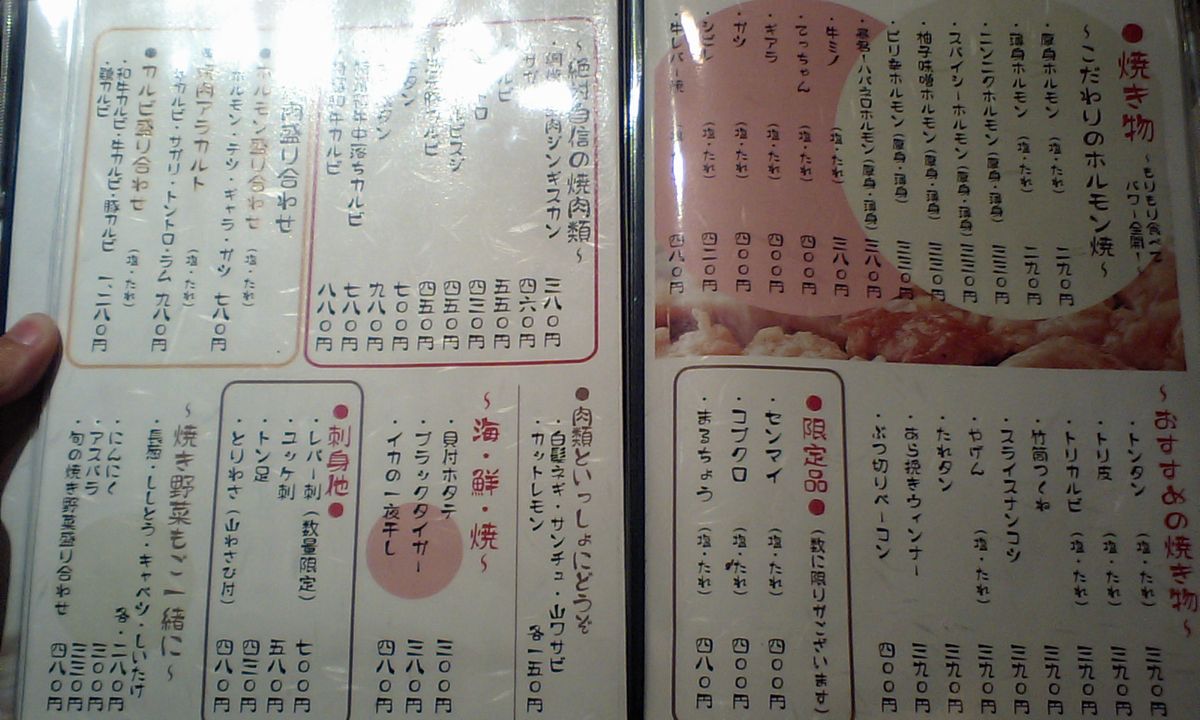 ●焼き物
～もりもり食べて
パワー全開！～
～こだわりのホルモン焼～
・厚身ホルモン（塩・たれ）二九〇円
・薄身ホルモン（塩・たれ）二九〇円
・ニンニクホルモン（厚身・薄身）三三〇円
・スパイシーホルモン（厚身・薄身）三三〇円
・柚子味噌ホルモン（厚身・薄身）三三〇円
・ピリ辛ホルモン（厚身・薄身）三三〇円
ハバネロホルモン（厚身・薄身）三八〇円
・牛ミノ（塩・たれ）三八〇円
・てっちゃん（塩・たれ）四〇〇円
・ギアラ（塩・たれ）四〇〇円
・ガツ（塩・たれ）四〇〇円
・シビレ（塩・たれ）四二〇円
・牛レバー焼（塩・たれ）四八〇円
～おすすめの焼き物～
・トンタン（塩・たれ）三九〇円
・トリ皮（塩・たれ）三九〇円
・トリカルビ（塩・たれ）三九〇円
・竹筒つくね 三九〇円
・スライスナンコツ 三九〇円
・やげん（塩・たれ）三九〇円
・たれタン 三九〇円
・あら挽きウィンナー 三九〇円
・ぶつ切りベーコン 四〇〇円
●限定品●（数に限りがございます）
・センマイ（塩・たれ）四〇〇円
・コブクロ（塩・たれ）四〇〇円
・まるちょう（塩・たれ）四八〇円
～絶対自信の焼肉類～
肉ジンギスカン 三八〇円
サガリ 四六〇円
五五〇円
四三〇円
四五〇円
カルビ 四五〇円
タン 七〇〇円
タン 九八〇円
牛中落ちカルビ 七八〇円
和牛カルビ 八八〇円
肉盛り合わせ
●ホルモン盛り合わせ（塩・たれ）
ホルモン・テシ・ギャラ・ガツ 七八〇円
肉アラカルト（塩・たれ）
カルビ・サガリ・トントロ・ラム 九八〇円
●カルビ盛り合わせ（塩・たれ）
・和牛カルビ・牛カルビ・豚カルビ
・鶏カルビ 一、二八〇円
●肉類といっしょにどうぞ
・白髪ネギ・サンチュ・山ワサビ
・カットレモン 各一五〇円
～海・鮮・焼～
・貝付ホタテ 三〇〇円
・ブラックタイガー 三八〇円
・イカの一夜干し 四八〇円
●刺身他●
・レバー刺（数量限定）七〇〇円
・ユッケ刺 五八〇円
・トン足 四三〇円
・とりわさ（山わさび付）四八〇円
～焼き野菜もご一緒に～
・長葱・ししとう・キャベツ・しいたけ
・にんにく 各・二八〇円
・アスパラ 三〇〇円
・旬の焼き野菜盛り合わせ 四八〇円